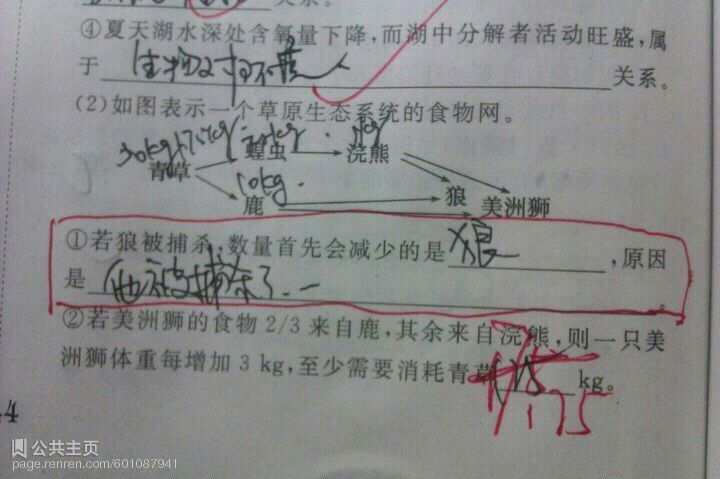 关系。
④夏天湖水深处含氧量下降,而湖中分解者活动旺盛,属
于 生物对环境 关系。
(2)如图表示一个草原生态系统的食物网。
青草 蝗虫 浣熊
鹿 10kg. 狼 美洲狮
①若狼被捕杀,数量首先会减少的是 狼 ,原因
是 他被捕杀了. 。
②若美洲狮的食物 2/3 来自鹿,其余来自浣熊,则一只美
洲狮体重每增加 3 kg,至少需要消耗青草 kg。
175
4
公共主页
page.renren.com/601087941